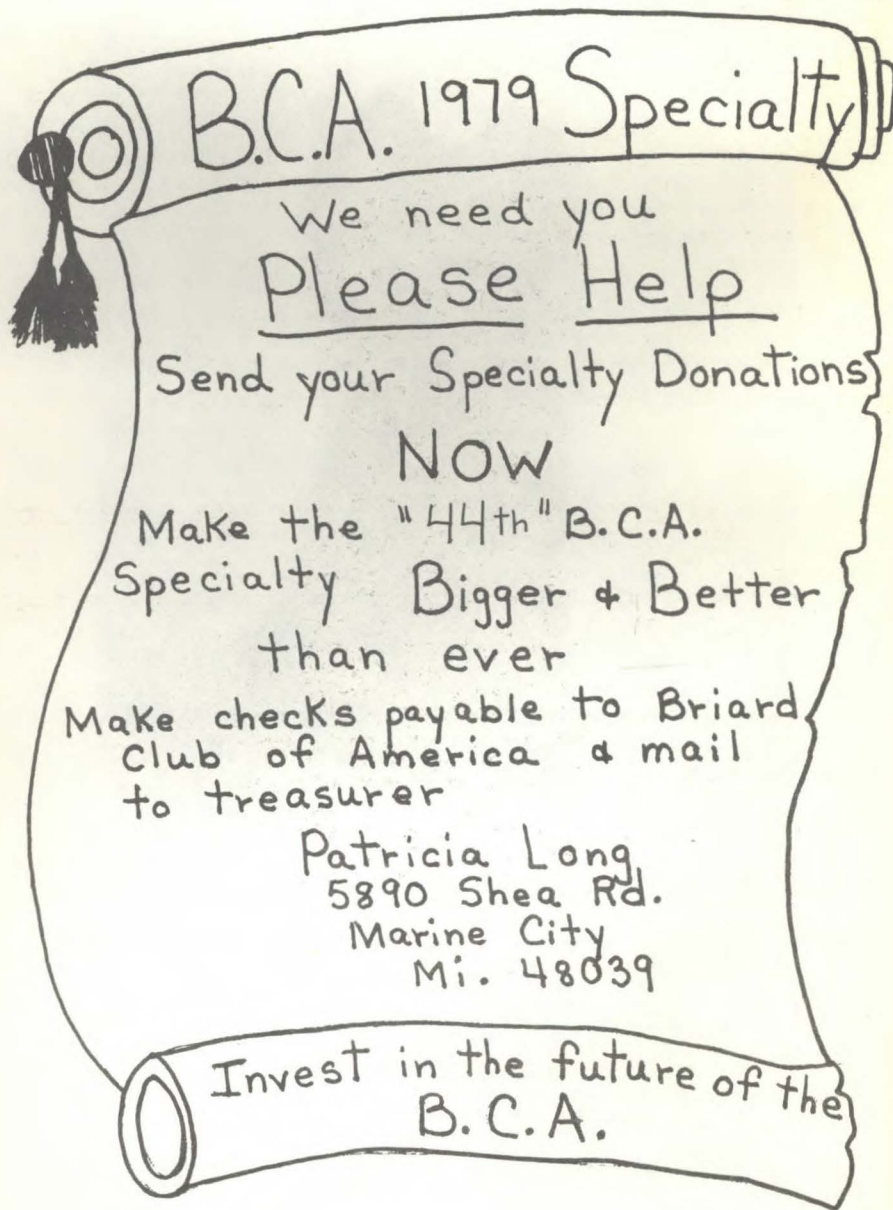 B.C.A. 1979 Specialty
We need you
Please Help
Send your Specialty Donations
NOW
Make the "44th" B.C.A.
Specialty Bigger & Better
than ever
Make checks payable to Briard
Club of America & mail
to treasurer
Patricia Long
5890 Shea Rd.
Marine City
Mi. 48039
Invest in the future of the
B.C.A.